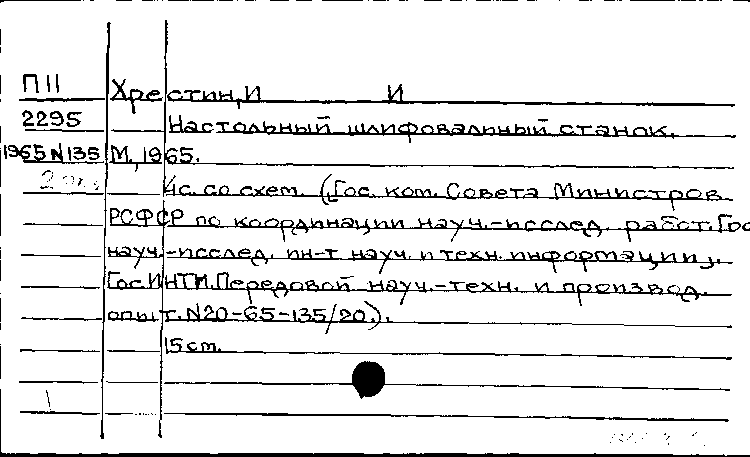 П11 Хрестин, И И
2295 Настольный шлифовальный станок.
1965 N 135 М., 1965.
4с. со схем. (Гос. ком. Совета Министров
РСФСР по координации науч.-исслед. работ. Гос
науч.-исслед. ин-т науч. и техн. информации.
ГосИНТИ. Передовой науч.-техн. и производ.
опыт. N20-65-135/20).
15 cm.